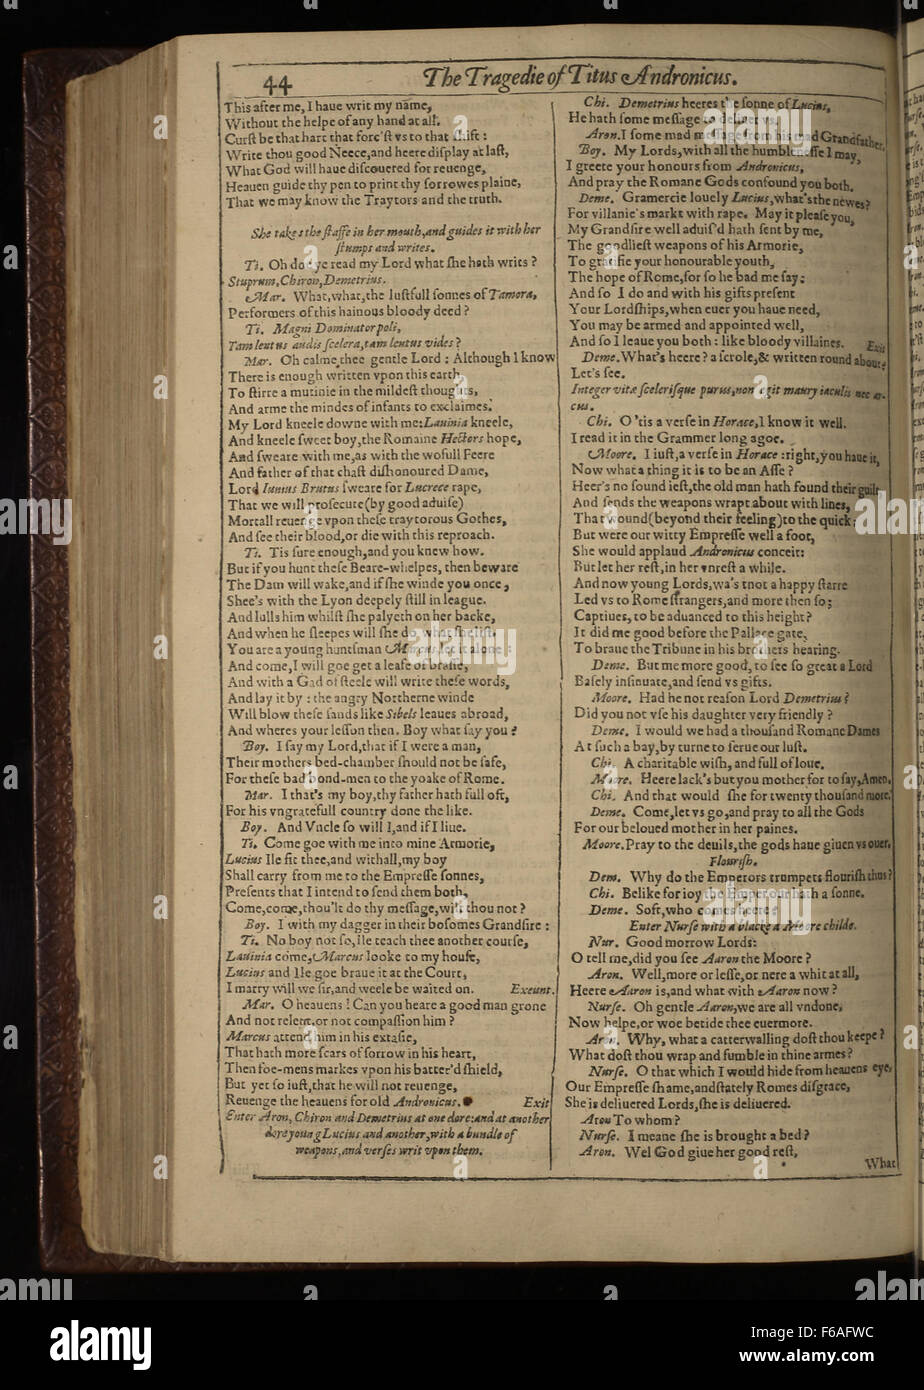 44
The Tragedie of Titus Andronicus.
This after me, I haue writ my name,
Without the helpe of any hand at all.
Curſt be that hart that forc'ſt vs to that ſhift:
Write thou good Neece, and heere diſplay at laſt,
What God will haue diſcouered for reuenge,
Heauen guide thy pen to print thy ſorrowes plaine,
That we may know the Traytors and the truth.
She takes the ſtaffe in her mouth, and guides it with her
ſtumps and writes.
Ti. Oh do ye read my Lord what ſhe hath writs?
Stuprum, Chiron, Demetrius.
Mar. What, what, the luſtfull ſonnes of Tamora,
Performers of this hainous bloody deed?
Ti. Magni Dominator poli,
Tam lentus audis ſcelera, tam lentus vides?
Mar. Oh calme thee gentle Lord: Although I know
There is enough written vpon this earth,
To ſtirre a mutinie in the mildeſt thoughts,
And arme the mindes of infants to exclaimes.
My Lord kneele downe with me: Lauinia kneele,
And kneele ſweet boy, the Romaine Hectors hope,
And ſweare with me, as with the wofull Feere
And father of that chaſt diſhonoured Dame,
Lord Iunius Brutus ſweare for Lucrece rape,
That we will proſecute (by good aduiſe)
Mortall reuenge vpon theſe traytorous Gothes,
And ſee their blood, or die with this reproach.
Ti. Tis ſure enough, and you knew how.
But if you hunt theſe Beare-whelpes, then beware
The Dam will wake, and if ſhe winde you once,
Shee's with the Lyon deepely ſtill in league.
And lulls him whilſt ſhe palyeth on her backe,
And when he ſleepes will ſhe do what ſhe liſt.
You are a young huntſman Marcus, let it alone:
And come, I will goe get a leafe of braſſe,
And with a Gad of ſteele will write theſe words,
And lay it by: the angry Northerne winde
Will blow theſe ſands like Sibels leaues abroad,
And wheres your leſſon then. Boy what ſay you?
Boy. I ſay my Lord, that if I were a man,
Their mothers bed-chamber ſhould not be ſafe,
For theſe bad bond-men to the yoake of Rome.
Mar. I that's my boy, thy father hath full oft,
For his vngratefull country done the like.
Boy. And Vncle ſo will I, and if I liue.
Ti. Come goe with me into mine Armorie,
Lucius Ile fit thee, and withall, my boy
Shall carry from me to the Empreſſe ſonnes,
Preſents that I intend to ſend them both,
Come, come, thou'lt do thy meſſage, wilt thou not?
Boy. I with my dagger in their boſomes Grandſire:
Ti. No boy not ſo, Ile teach thee another courſe,
Lauinia come, Marcus looke to my houſe,
Lucius and Ile goe braue it at the Court,
I marry will we ſir, and weele be waited on. Exeunt.
Mar. O heauens! Can you heare a good man grone
And not relent, or not compaſſion him?
Marcus attend him in his extaſie,
That hath more ſcars of ſorrow in his heart,
Then foe-mens markes vpon his batter'd ſhield,
But yet ſo iuſt, that he will not reuenge,
Reuenge the heauens for old Andronicus. Exit
Enter Aron, Chiron and Demetrius at one dore: and at another
dore young Lucius and another, with a bundle of
weapons, and verſes writ vpon them.
Chi. Demetrius heeres the ſonne of Lucius,
He hath ſome meſſage to deliuer vs.
Aron. I ſome mad meſſage from his mad Grandfather.
Boy. My Lords, with all the humbleneſſe I may,
I greete your honours from Andronicus,
And pray the Romane Gods confound you both.
Deme. Gramercie louely Lucius, what's the newes?
For villanie's markt with rape. May it pleaſe you,
My Grandſire well aduiſ'd hath ſent by me,
The goodlieſt weapons of his Armorie,
To gratifie your honourable youth,
The hope of Rome, for ſo he bad me ſay:
And ſo I do and with his gifts preſent
Your Lordſhips, when euer you haue need,
You may be armed and appointed well,
And ſo I leaue you both: like bloody villaines. Exit
Deme. What's heere? a ſcrole, & written round about?
Let's ſee.
Integer vitæ ſceleriſque purus, non egit maury iaculis nec ar-
cus.
Chi. O 'tis a verſe in Horace, I know it well.
I read it in the Grammer long agoe.
Moore. I iuſt, a verſe in Horace: right, you haue it,
Now what a thing it is to be an Aſſe?
Heer's no ſound ieſt, the old man hath found their guilt
And ſends the weapons wrapt about with lines,
That wound (beyond their feeling) to the quick:
But were our witty Empreſſe well a foot,
She would applaud Andronicus conceit:
But let her reſt, in her vnreſt a while.
And now young Lords, wa's tnot a happy ſtarre
Led vs to Rome ſtrangers, and more then ſo;
Captiues, to be aduanced to this height?
It did me good before the Pallace gate,
To braue the Tribune in his brothers hearing.
Deme. But me more good, to ſee ſo great a Lord
Baſely inſinuate, and ſend vs gifts.
Moore. Had he not reaſon Lord Demetrius?
Did you not vſe his daughter very friendly?
Deme. I would we had a thouſand Romane Dames
At ſuch a bay, by turne to ſerue our luſt.
Chi. A charitable wiſh, and full of loue.
Moore. Heere lack's but you mother for to ſay, Amen.
Chi. And that would ſhe for twenty thouſand more.
Deme. Come, let vs go, and pray to all the Gods
For our beloued mother in her paines.
Moore. Pray to the deuils, the gods haue giuen vs ouer.
Flouriſh.
Dem. Why do the Emperors trumpets flouriſh thus?
Chi. Belike for ioy the Emperour hath a ſonne.
Deme. Soft, who comes heere?
Enter Nurſe with a blacke a Moore childe.
Nur. Good morrow Lords:
O tell me, did you ſee Aaron the Moore?
Aron. Well, more or leſſe, or nere a whit at all,
Heere Aaron is, and what with Aaron now?
Nurſe. Oh gentle Aaron, we are all vndone,
Now helpe, or woe betide thee euermore.
Aron. Why, what a catterwalling doſt thou keepe?
What doſt thou wrap and fumble in thine armes?
Nurſe. O that which I would hide from heauens eye,
Our Empreſſe ſhame, and ſtately Romes diſgrace,
She is deliuered Lords, ſhe is deliuered.
Aron To whom?
Nurſe. I meane ſhe is brought a bed?
Aron. Wel God giue her good reſt,
What
alamy stock photo
alamy
Image ID: F6AFWC
www.alamy.com